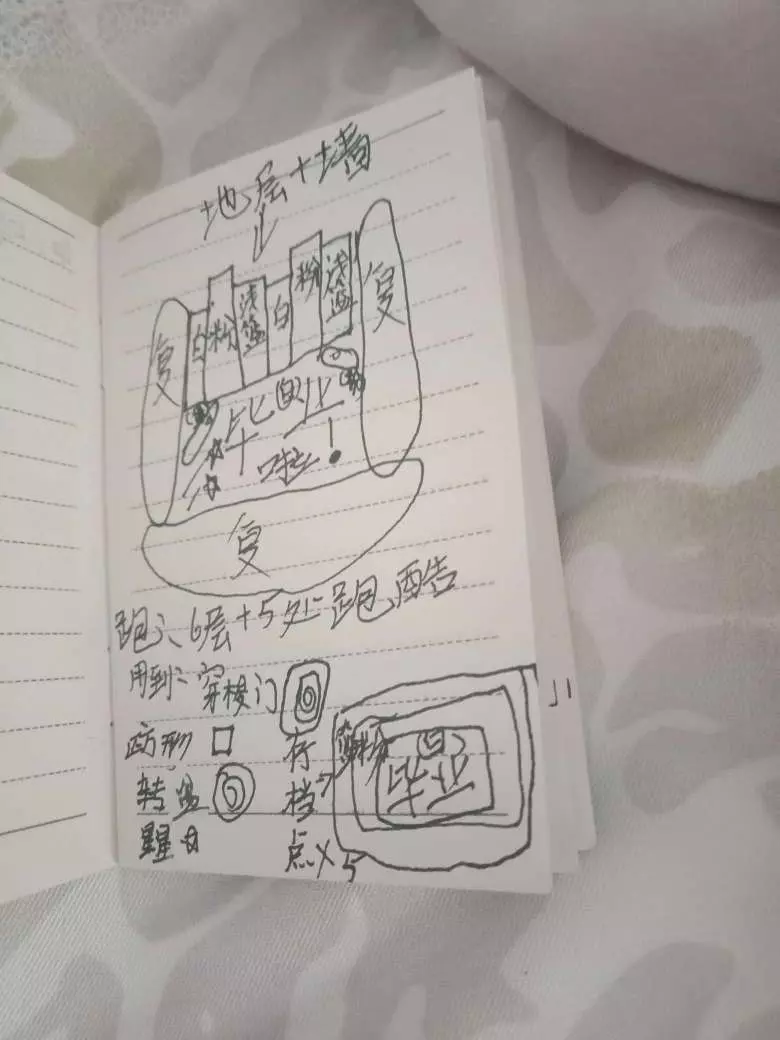 地层+墙
白 粉 浅蓝 白 粉 浅蓝
复 复
毕业
啦!
复
跑:6层+5处跑酷
用到:穿梭门
方形
转盘
星星
存档点×5
蓝 粉 白
毕业